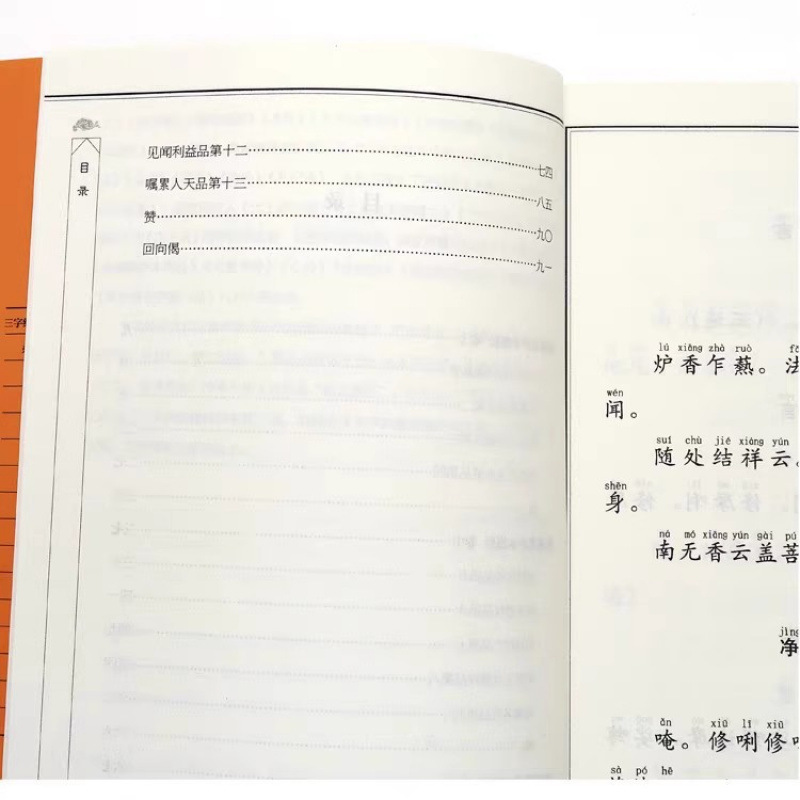 目录
见闻利益品第十二……七四
嘱累人天品第十三……八五
赞……九〇
回向偈……九一
三字经
lú xiāng zhà ruò
炉香乍爇。法
wén
闻。
suí chù jié xiáng yún
随处结祥云。
shēn
身。
ná mó xiāng yún gài pú
南无香云盖菩
jìng
净
ǎn xiū lì xiū
唵。修唎修
sà pó hē